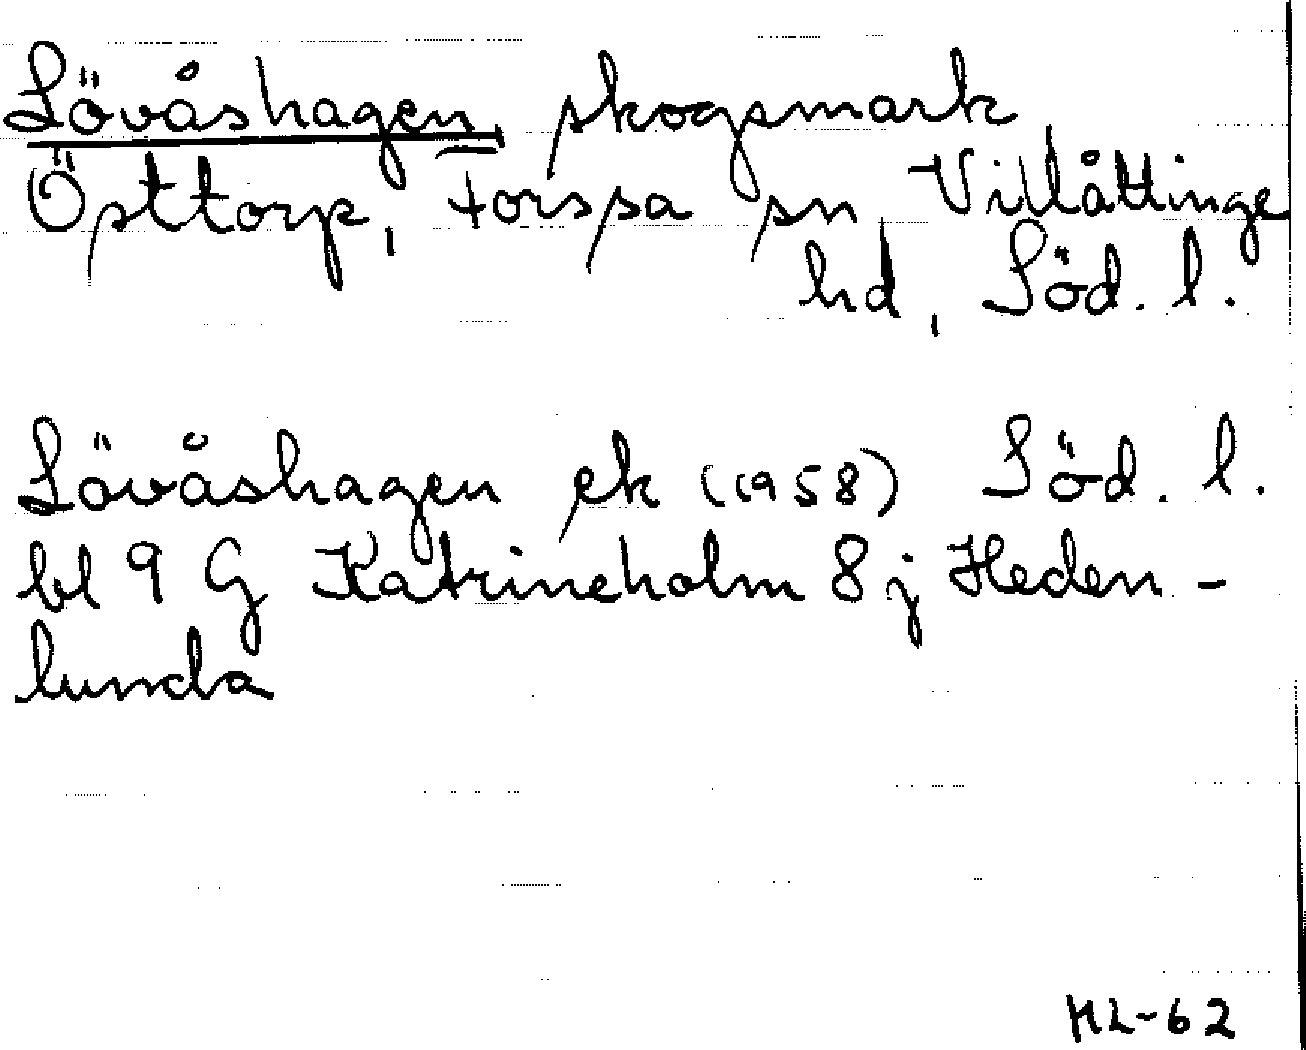 Lövåshagen, skogsmark
Östtorp, Forssa sn, Villåttinge
hd, Söd. l.
Lövåshagen ek (1958) Söd. l.
bl 9 G Katrineholm 8 j Heden-
lunda
ML-62